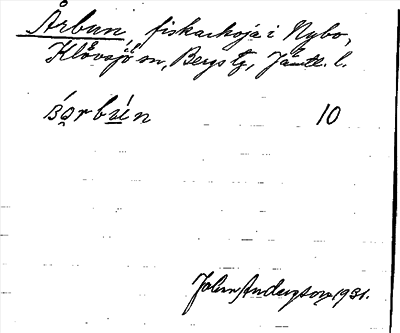 Årbun, fiskarkoja i Nybo,
Klövsjö sn, Bergs tg, Jämtl. l.
10
Johan Anderson 1931.